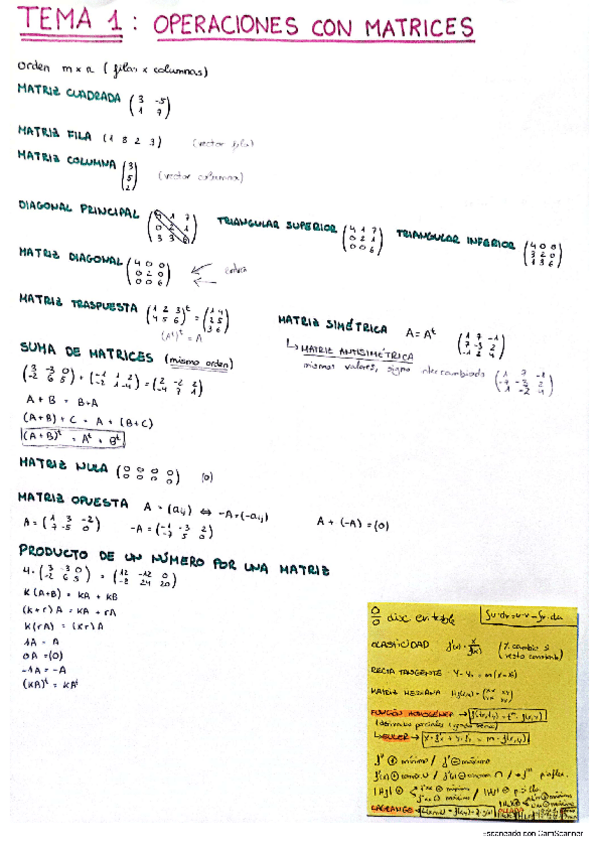 TEMA 1: OPERACIONES CON MATRICES
Orden m x n (filas x columnas)
MATRIZ CUADRADA (3 -5
1 7)
MATRIZ FILA (1 8 2 3) (vector fila)
MATRIZ COLUMNA (3
5
2) (vector columna)
DIAGONAL PRINCIPAL (4 1 7
0 2 1
3 3 6)
TRIANGULAR SUPERIOR (4 1 7
0 2 1
0 0 6)
TRIANGULAR INFERIOR (4 0 0
3 2 0
1 3 6)
MATRIZ DIAGONAL (4 0 0
0 2 0
0 0 6)
MATRIZ TRASPUESTA (1 2 3
4 5 6)^t = (1 4
2 5
3 6)
(A^t)^t = A
MATRIZ SIMÉTRICA A = A^t (1 7 -1
7 -3 2
-1 2 4)
↳ MATRIZ ANTISIMÉTRICA
mismos valores, signo intercambiado (1 7 -1
-7 -3 2
1 -2 4)
SUMA DE MATRICES (mismo orden)
(3 -3 0
-2 6 5) + (-1 1 2
-2 1 -4) = (2 -2 2
-4 7 1)
A + B = B+A
(A+B) + C = A + (B+C)
(A+B)^t = A^t + B^t
MATRIZ NULA (0 0 0 0
0 0 0 0) (0)
MATRIZ OPUESTA A = (aij) ⇔ -A = (-aij)
A = (1 3 -2
7 -5 0) -A = (-1 -3 2
-7 5 0) A + (-A) = (0)
PRODUCTO DE UN NÚMERO POR UNA MATRIZ
4 · (3 -3 0
-2 6 5) = (12 -12 0
-8 24 20)
K(A+B) = KA + KB
(K+r)A = KA + rA
K(rA) = (Kr)A
1A = A
0A = (0)
-1A = -A
(KA)^t = KA^t
0/0 disc evitable ∫u·dv = u·v - ∫v·du
ELASTICIDAD
RECTA TANGENTE y - y₀ = m(x - x₀)
MATRIZ HESSIANA
FUNCIÓN HOMOGÉNEA →
↳ EULER → x·f'x + y·f'y = m·f(x,y)
mínimo / máximo
LAGRANGE
Escaneado con CamScanner